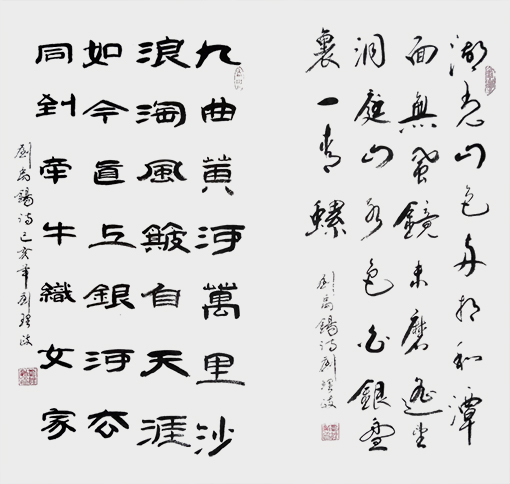 湖光山色兩相和潭
面無風鏡未磨遙望
洞庭山水色白銀盤
裏一青螺
劉禹錫詩劉
九曲黃河萬里沙
浪淘風簸自天涯
如今直上銀河去
同到牽牛織女家
劉禹錫詩己亥年劉